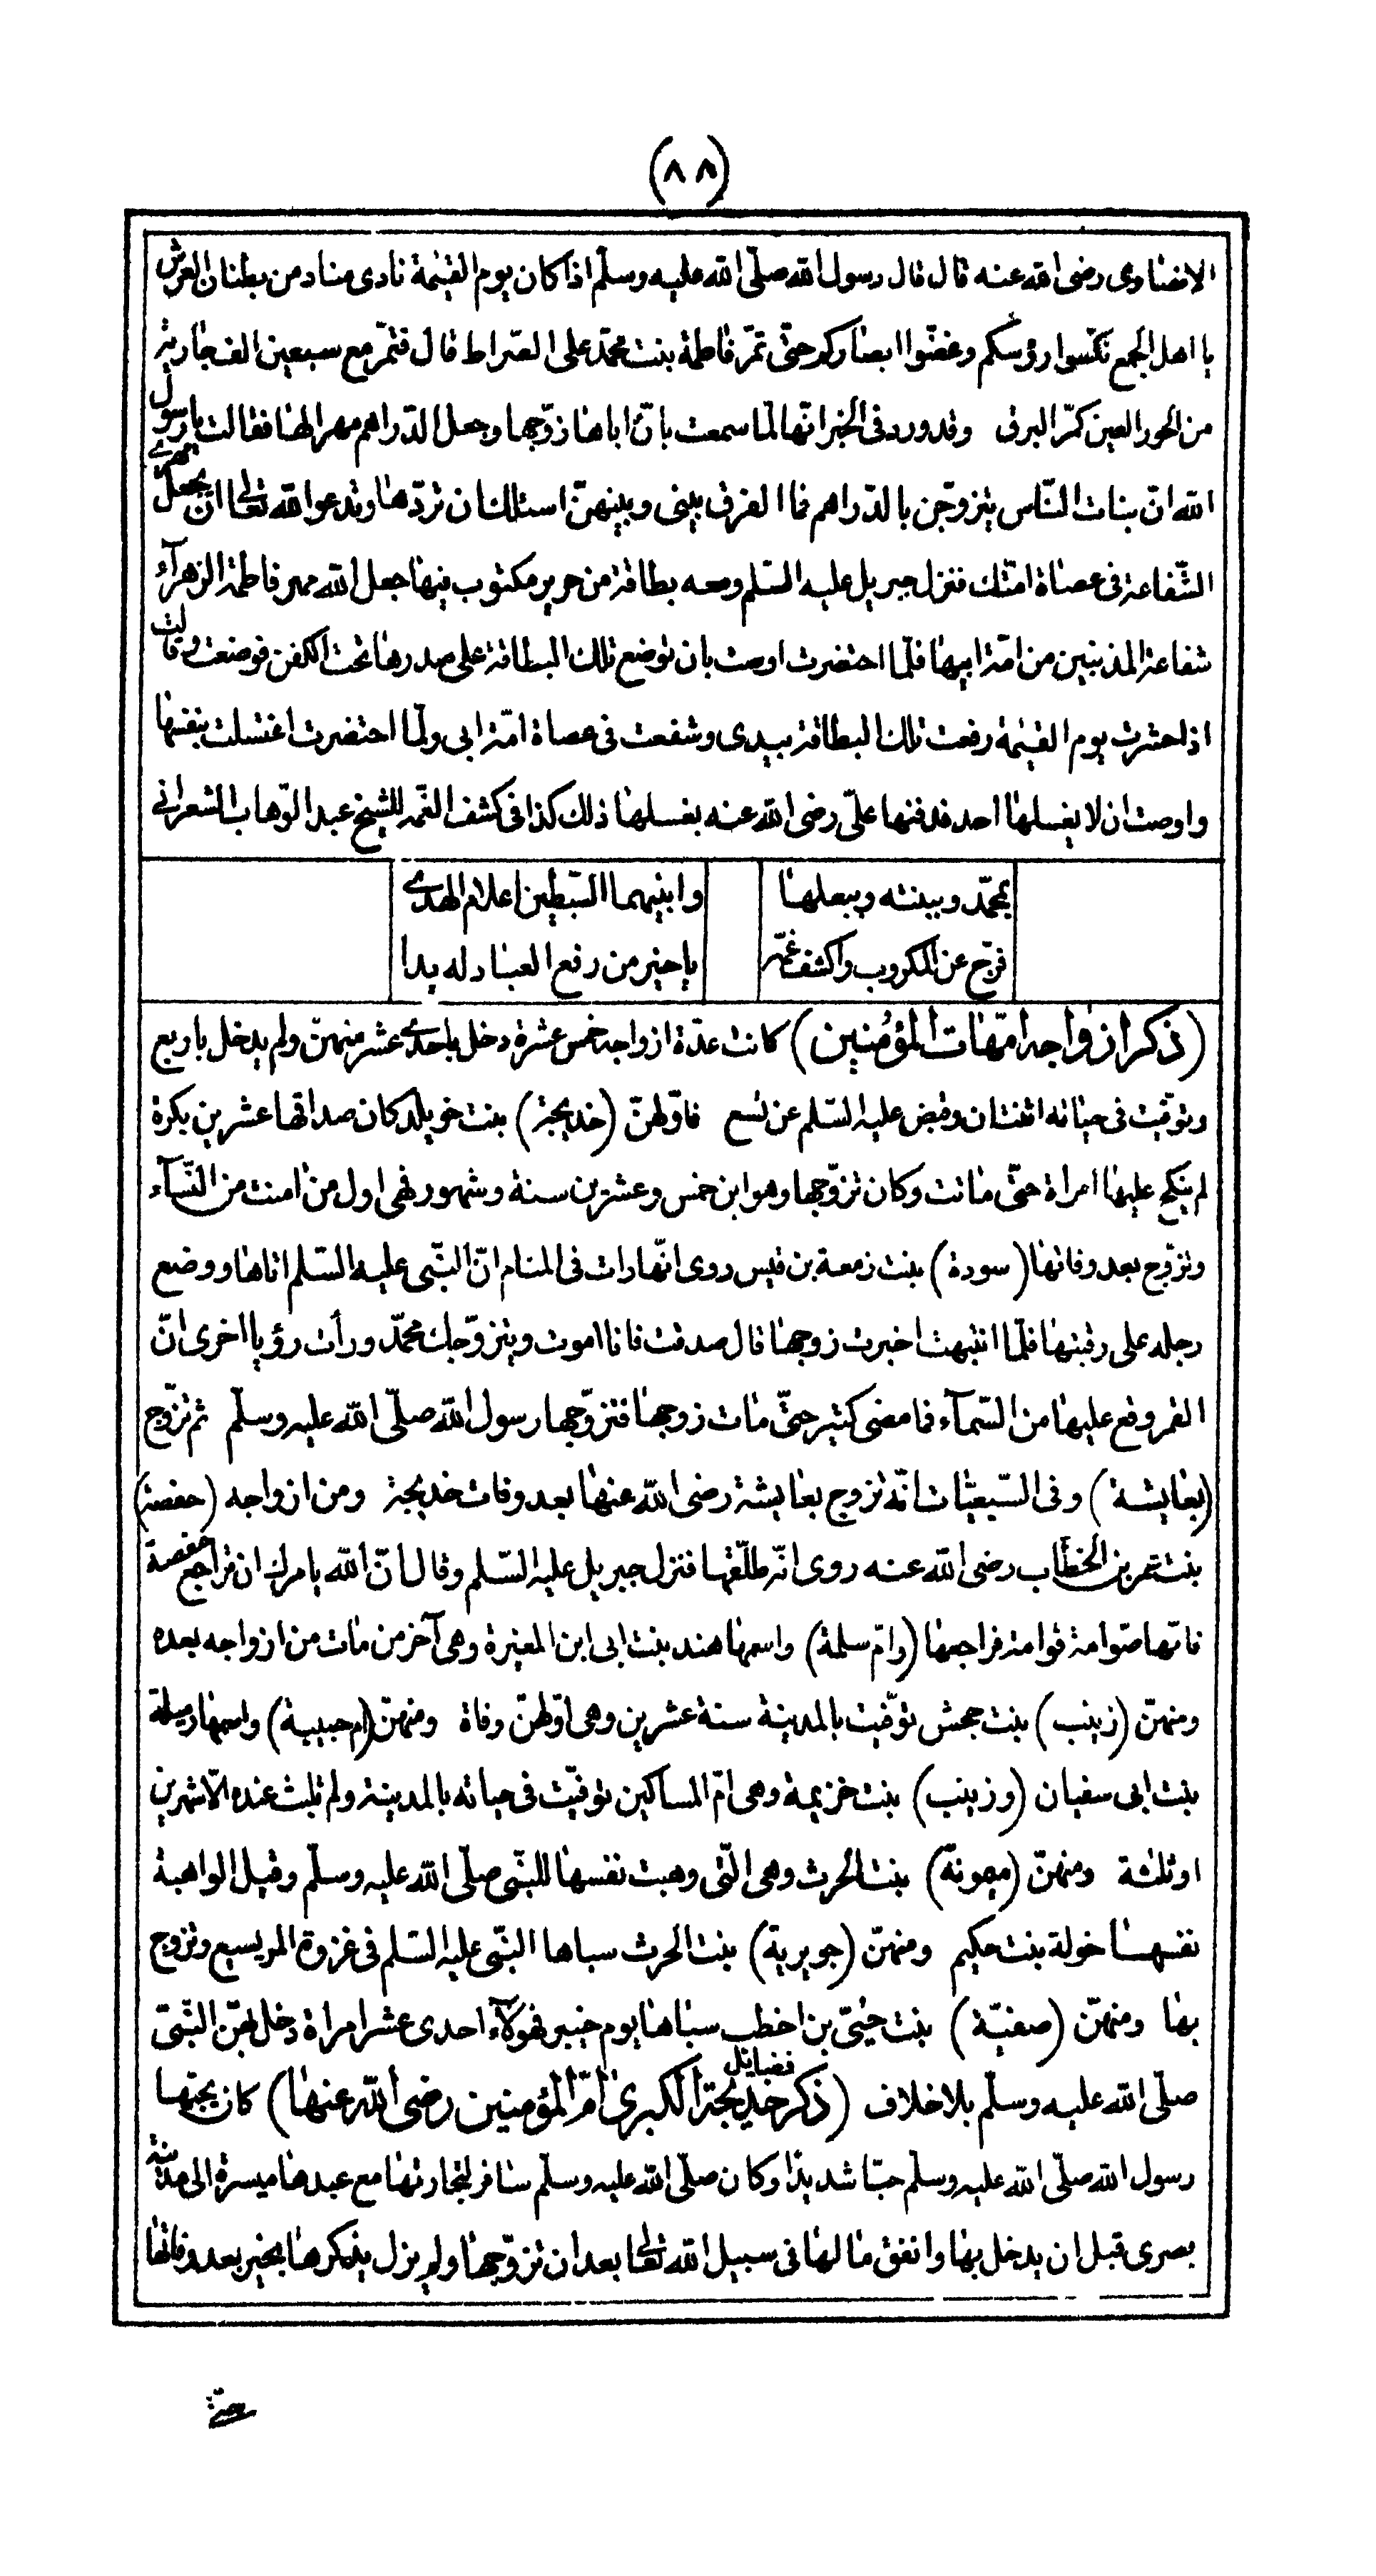 (٨٨)
الانصارى رضى الله عنه قال قال رسول الله صلّى الله عليه وسلّم اذا كان يوم القيٰمة نادى مناد من بطنان العرش
يا اهل الجمع نكّسوا رؤسكم وغضّوا ابصاركم حتّى تمرّ فاطمة بنت محمّد على الصراط قال فتمرّ مع سبعين الف جارية
من الحور العين كمرّ البرق وقد ورد فى الخبر انّها لمّا سمعت بانّ اباها زوّجها وجعل الدّراهم مهرا لها فقالت يا رسول
الله انّ بنات النّاس يتزوّجن بالدّراهم فما الفرق بينى وبينهنّ اسئلك ان تردّها وتدعوا الله تعالى ان يجعل مهرى
الشّفاعة فى عصاة امّتك فنزل جبريل عليه السّلم ومعه بطاقة من حرير مكتوب فيها جعل الله مهر فاطمة الزهرآء
شفاعة المذنبين من امّة ابيها فلمّا احتضرت اوصت بان توضع تلك البطاقة على صدرها تحت الكفن فوضعت وقالت
اذا حشرت يوم القيٰمة رفعت تلك البطاقة بيدى وشفعت فى عصاة امّة ابى ولمّا احتضرت اغتسلت بنفسها
واوصت ان لا يغسلها احد فدفنها علىّ رضى الله عنه بغسلها ذلك كذا فى كشف الغمّه للشيخ عبد الوّهاب الشعرانى
بمحمّد وببنته وببعلها وابنيهما السّبطين اعلام الهدى
فرّج عن المكروب واكشف غمّه يا خير من رفع العباد له يدا
(ذكر ازواجه امّهات المؤمنين) كانت عدّة ازواجه خمس عشرة دخل باحدى عشر منهنّ ولم يدخل باربع
وتوفّيت فى حياته اثنتان وقبض عليه السّلم عن تسع فاوّلهنّ (خديجة) بنت خويلد كان صداقها عشرين بكرة
لم ينكح عليها امراة حتّى ماتت وكان تزوّجها وهو ابن خمس وعشرين سنة وشهور فهى اول من امنت من النّسآء
وتزوّج بعد وفاتها (سودة) بنت زمعة بن قيس روى انّها رات فى المنام انّ النّبى عليه السّلم اتاها ووضع
رجله على رقبتها فلمّا انتبهت اخبرت زوجها قال صدقت فانا اموت ويتزوّجك محمّد ورأت رؤيا اخرى انّ
القمر وقع عليها من السّمآء فما مضى كثير حتّى مات زوجها فتزوّجها رسول الله صلّى الله عليه وسلّم ثم تزوّج
(بعايشة) وفى السّبعيّات انّه تزوج بعايشة رضى الله عنها بعد وفات خديجة ومن ازواجه (حفصة)
بنت عمر بن الخطاب رضى الله عنه روى انّه طلّقها فنزل جبريل عليه السّلم وقال انّ الله يامرك ان تراجع حفصة
فانّها صوّامة قوامة فراجعها (وامّ سلمة) واسمها هند بنت ابى ابن المغيرة وهى آخر من مات من ازواجه بعده
ومنهنّ (زينب) بنت جحش توفّيت بالمدينة سنة عشرين وهى اوّلهنّ وفاة ومنهنّ (ام حبيبة) واسمها رميلة
بنت ابى سفيان (وزينب) بنت خزيمة وهى امّ المساكين توفيّت فى حياته بالمدينة ولم تلبث عنده الّا شهرين
او ثلثة ومنهنّ (ميمونة) بنت الحرث وهى الّتى وهبت نفسها للنّبى صلّى الله عليه وسلّم وقيل الواهبة
نفسها خولة بنت حكيم ومنهنّ (جويرية) بنت الحرث سباها النّبى عليه السّلم فى غزوة المريسيع وتزوج
بها ومنهنّ (صفيّة) بنت حيّى بن اخطب سباها يوم خيبر فهولآء احدى عشر امراة دخل بهنّ النّبى
صلّى الله عليه وسلّم بلا خلاف (ذكر فضايل خديجة الكبرى امّ المؤمنين رضى الله عنها) كان يحبّها
رسول الله صلّى الله عليه وسلّم حبّا شديدا وكان صلّى الله عليه وسلّم سافر لتجارتها مع عبدها ميسرة الى مدينة
بصرى قبل ان يدخل بها وانفق مالها فى سبيل الله تعالى بعد ان تزوّجها ولم يزل يذكرها بخير بعد وفاتها
حتّى